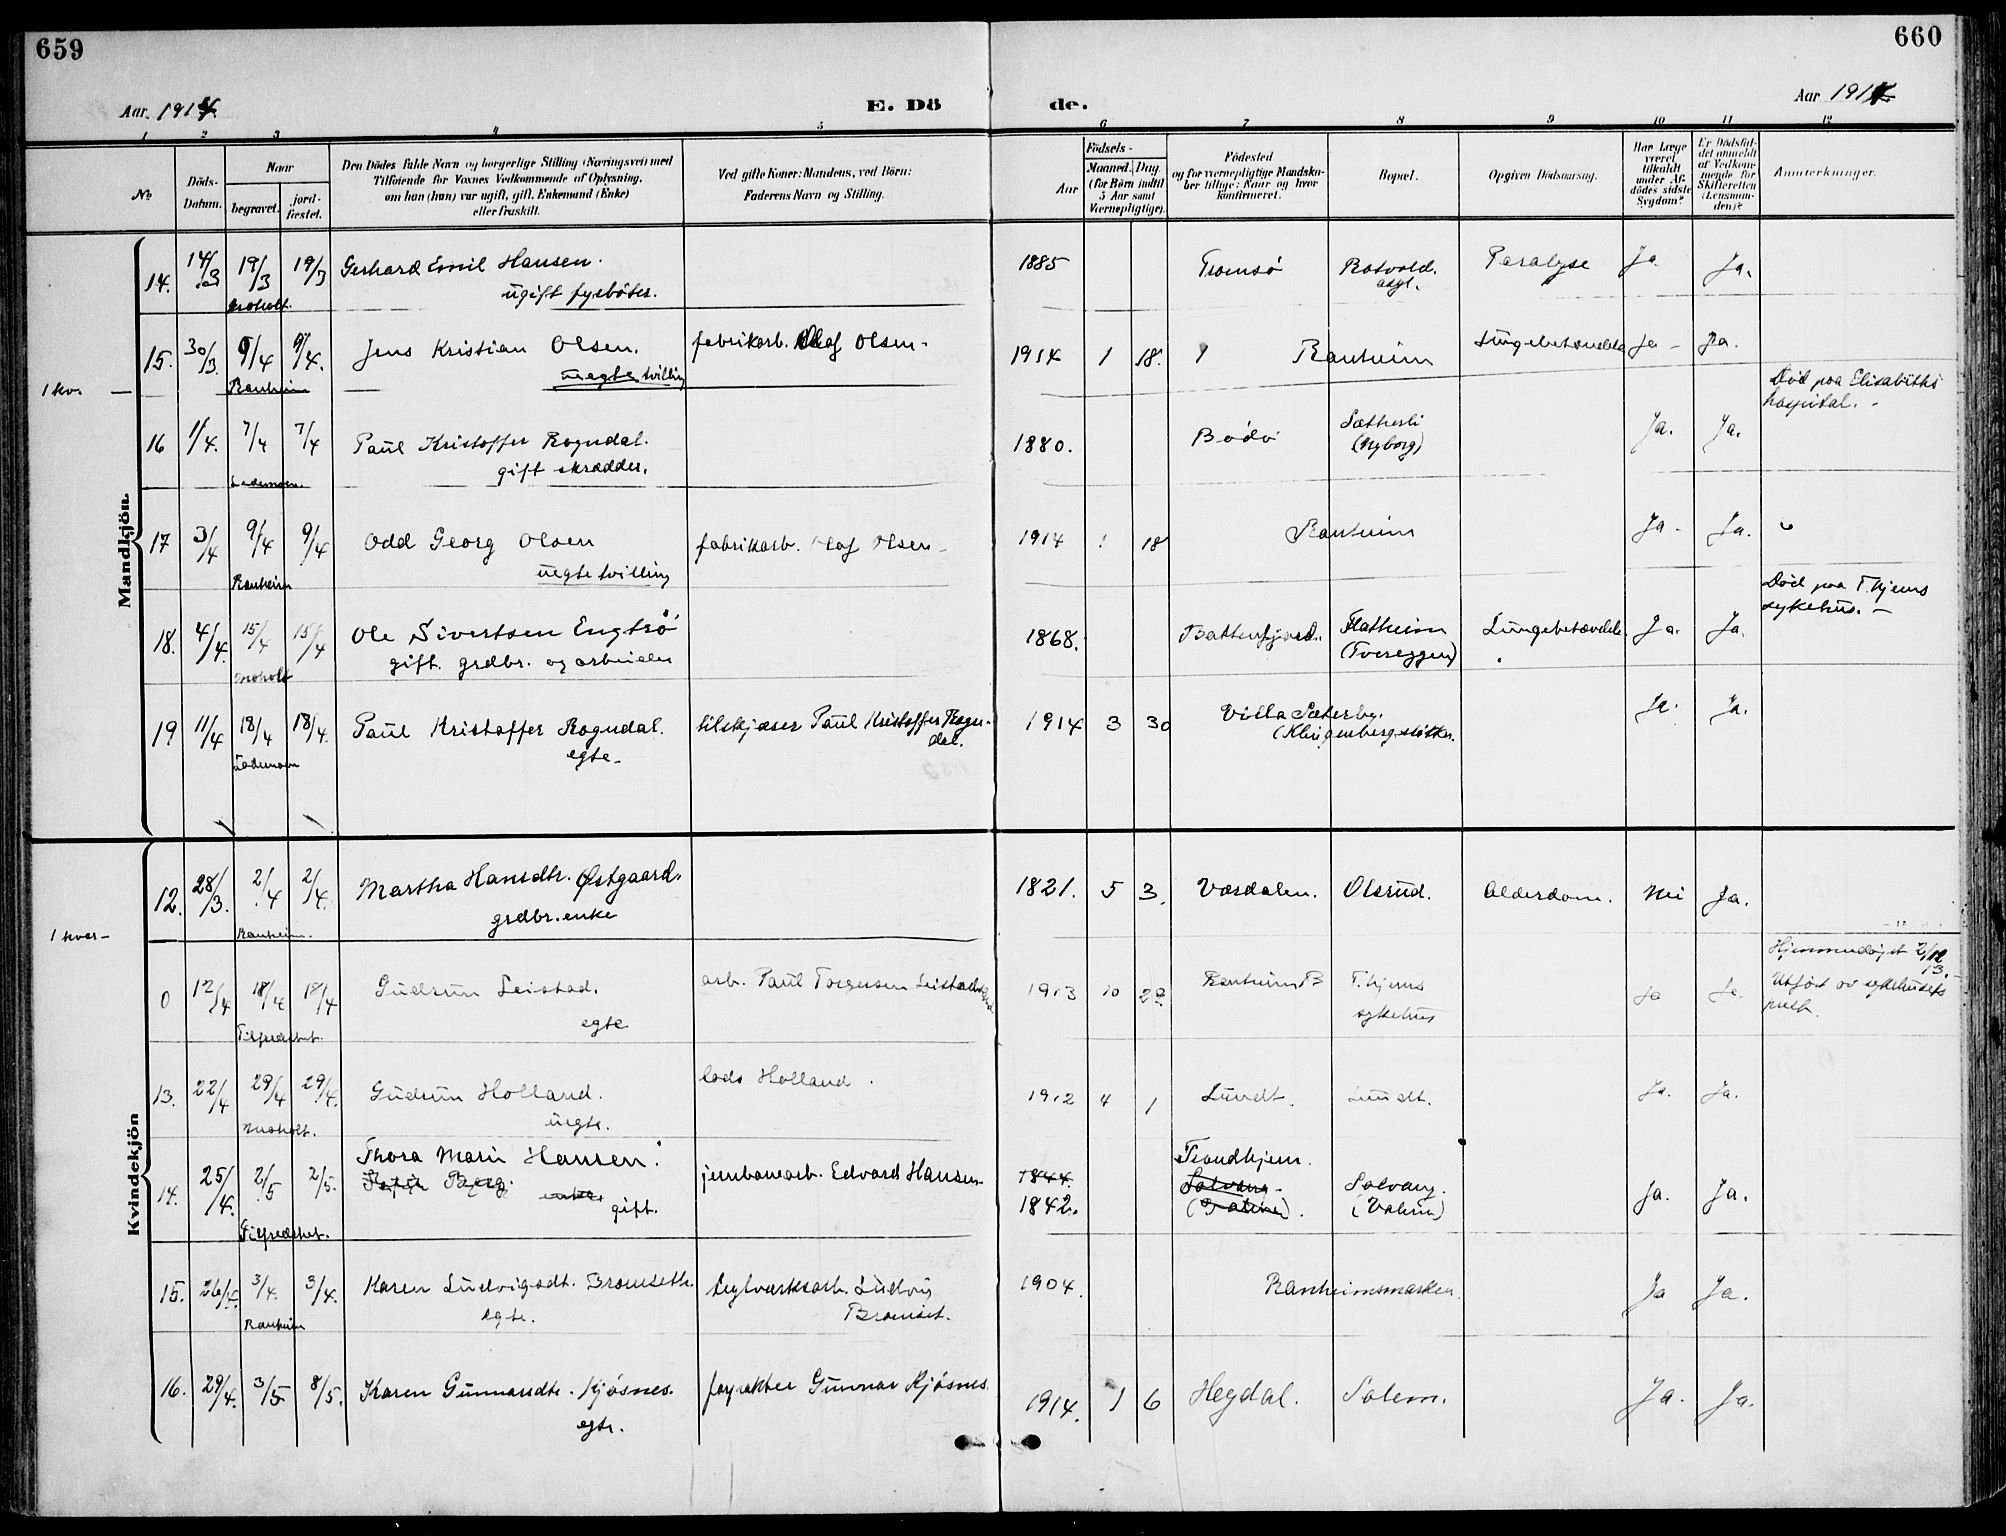 659
660
Aar. 1914.
E. Dö
de.
Aar 1914
1 2 3 4 5 6 7 8 9 10 11 12
No
Döds-Datum.
Naar
begravet.
jord-fæstet.
Den Dödes fulde Navn og borgerlige Stilling (Næringsvei) med
Tilføiende for Voxnes Vedkommende af Oplysning,
om han (hun) var ugift, gift, Enkemand (Enke)
eller fraskilt.
Ved gifte Koner: Mandens, ved Börn:
Faderens Navn og Stilling.
Födsels-
Aar
Maaned. Dag.
(for Börn indtil
5 Aar samt
Værnepligtige).
Födested
og for værnepligtige Mandska-
ber tillige: Naar og hvor
konfirmeret.
Bopæl.
Opgiven Dödsaarsag.
Har Læge
været
tilkaldt
under Af-
dödes sidste
Sygdom?
Er Dödsfal-
det anmeldt
af Vedkom-
mende for
Skifteretten
(Lensman-
den)?
Anmerkninger.
Mandkjön.
14. 14/3 19/3 19/3 Gerhard Emil Hansen. 1885 Tromsø Rotvold. Paralyse Ja Ja.
Moholt. ugift fyrbøter. asyl.
15. 30/3 9/4 9/4. Jens Kristian Olsen. fabrikarb. Olaf Olsen- 1914 1 18. Ranheim Lungebetændelse Ja - Ja.
1 kv. Ranheim uegte tvilling
Død paa Elisabeths
hospital. -
16 1/4. 7/4 7/4 Paul Kristoffer Rogndal. 1880. Bodø Sætherli Ja. Ja.
Lademoen. gift skrædder. (Nyborg)
17 3/4 9/4 9/4 Odd Georg Olsen fabrikarb. Olaf Olsen- 1914 1 18 Ranheim Ja - Ja.
Ranheim uegte tvilling
Død paa T.hjems
sykehus. -
18. 4/4. 15/4 15/4 Ole Sivertsen Engtrø 1868. Battenfjord. Flatheim Lungebetændelse. Ja. Ja.
Moholt gift. grdbr. og arbeider (Tvereggen)
19 11/4 18/4 18/4. Paul Kristoffer Rogndal. tilskjærer Paul Kristoffer Rogn-
dal. 1914 3 30 Villa Sæterby. Ja. Ja.
Lademoen egte- (Klingenberg
Kvindekjön
12. 28/3. 2/4 2/4. Martha Hansdtr. Østgaard. 1821. 5 3. Værdalen. Olsrud. Alderdom. Nei Ja.
1 kvar- Ranheim. grdbr. enke
Hjemmedøpt 2/12
13.
Utført av sykehusets
prest.
0 12/4 18/4 18/4 Gudrun Leistad. arb. Paul Torgersen Leistad 1913 10 Ranheim B T.hjems Ja Ja.
Tilfredshet. egte sykehus
13. 22/4 29/4 29/4. Gudrun Holland. lods Holland. 1912 4 1 Lundt. Lundt. Ja. Ja.
Moholt. uegte.
14. 25/4. 2/5 2/5. Thora Marie Hansen. jernbanearb. Edvard Hansen 1844. Trondhjem. Solvang. Ja. Ja.
Berg. enke gift. 1842. Solvang- (Valerin)
Tilfredshet.
15. 26/4. 3/4. 3/4. Karen Ludvigsdt. Bromseth. teglværksarb. Ludvig 1904. Ranheimsmarken. Ja Ja.
Ranheim egte. Bromset.
16. 29/4. 3/5 8/5. Karen Gunnarsdtr. Kjøsnes. forpakter Gunnar Kjøsnes. 1914. 1 6 Hegdal. Solem. Ja. Ja.
egte.